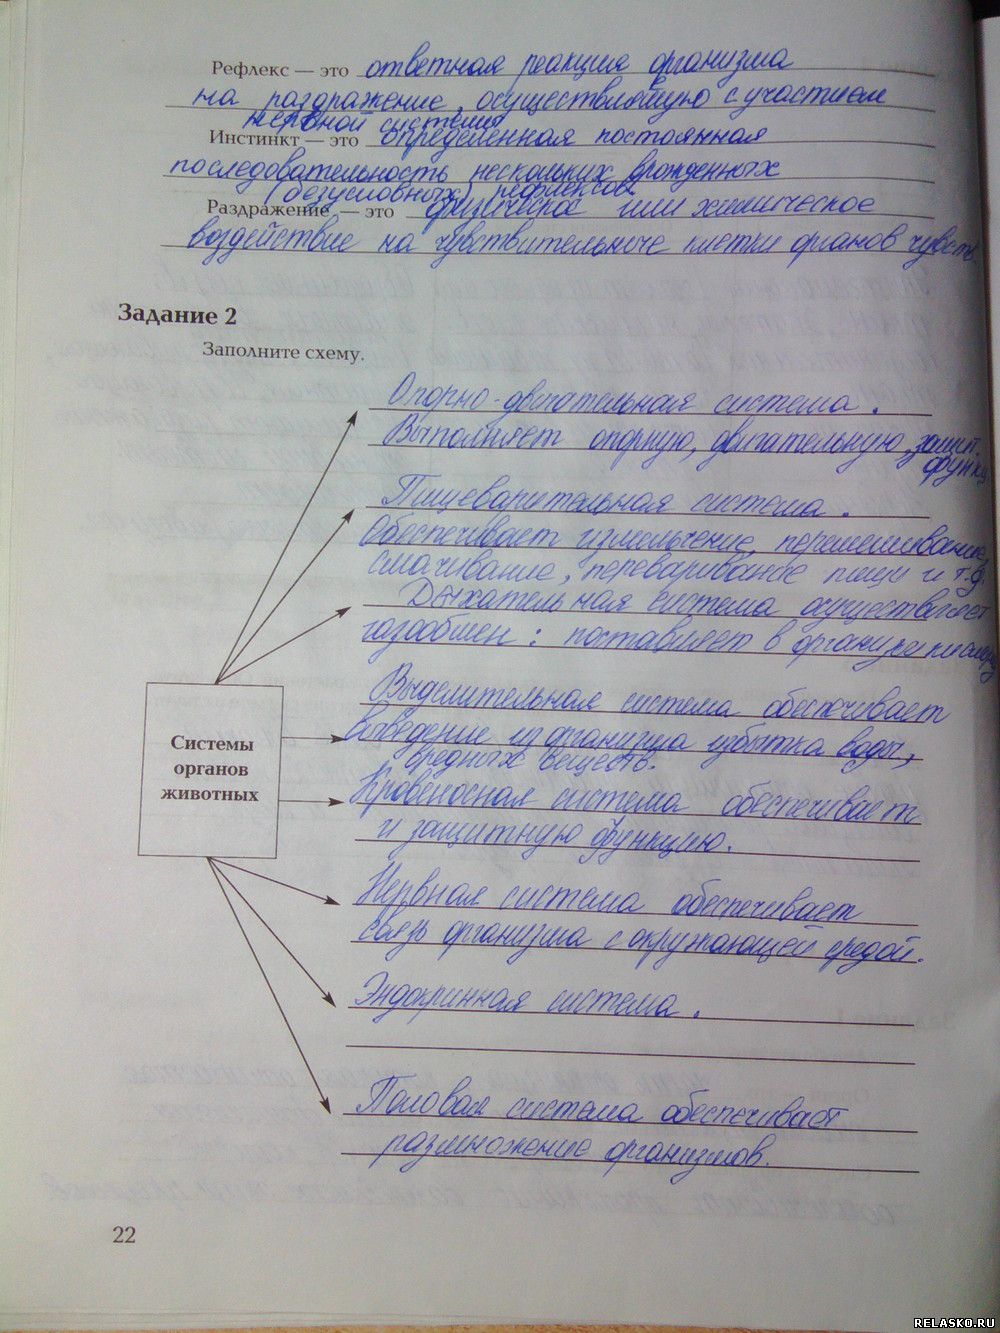 Рефлекс — это ответная реакция организма
на раздражение, осуществляющую с участием
нервной системы
Инстинкт — это определенная постоянная
последовательность нескольких врожденных
(безусловных) рефлексов
Раздражение — это физическое или химическое
воздействие на чувствительные клетки органов чувств
Задание 2
Заполните схему.
Опорно-двигательная система.
Выполняет опорную, двигательную, защит.
функц
Пищеварительная система.
Обеспечивает измельчение, перемешивание,
смачивание, переваривание пищи и т.д.
Дыхательная система осуществляет
газообмен: поставляет в организм
Выделительная система обеспечивает
выведение из организма избытка воды,
вредных веществ.
Системы
органов
животных
Кровеносная система обеспечивает
и защитную функцию.
Нервная система обеспечивает
связь организма с окружающей средой.
Эндокринная система.
Половая система обеспечивает
размножение организмов.
22
RELASKO.RU